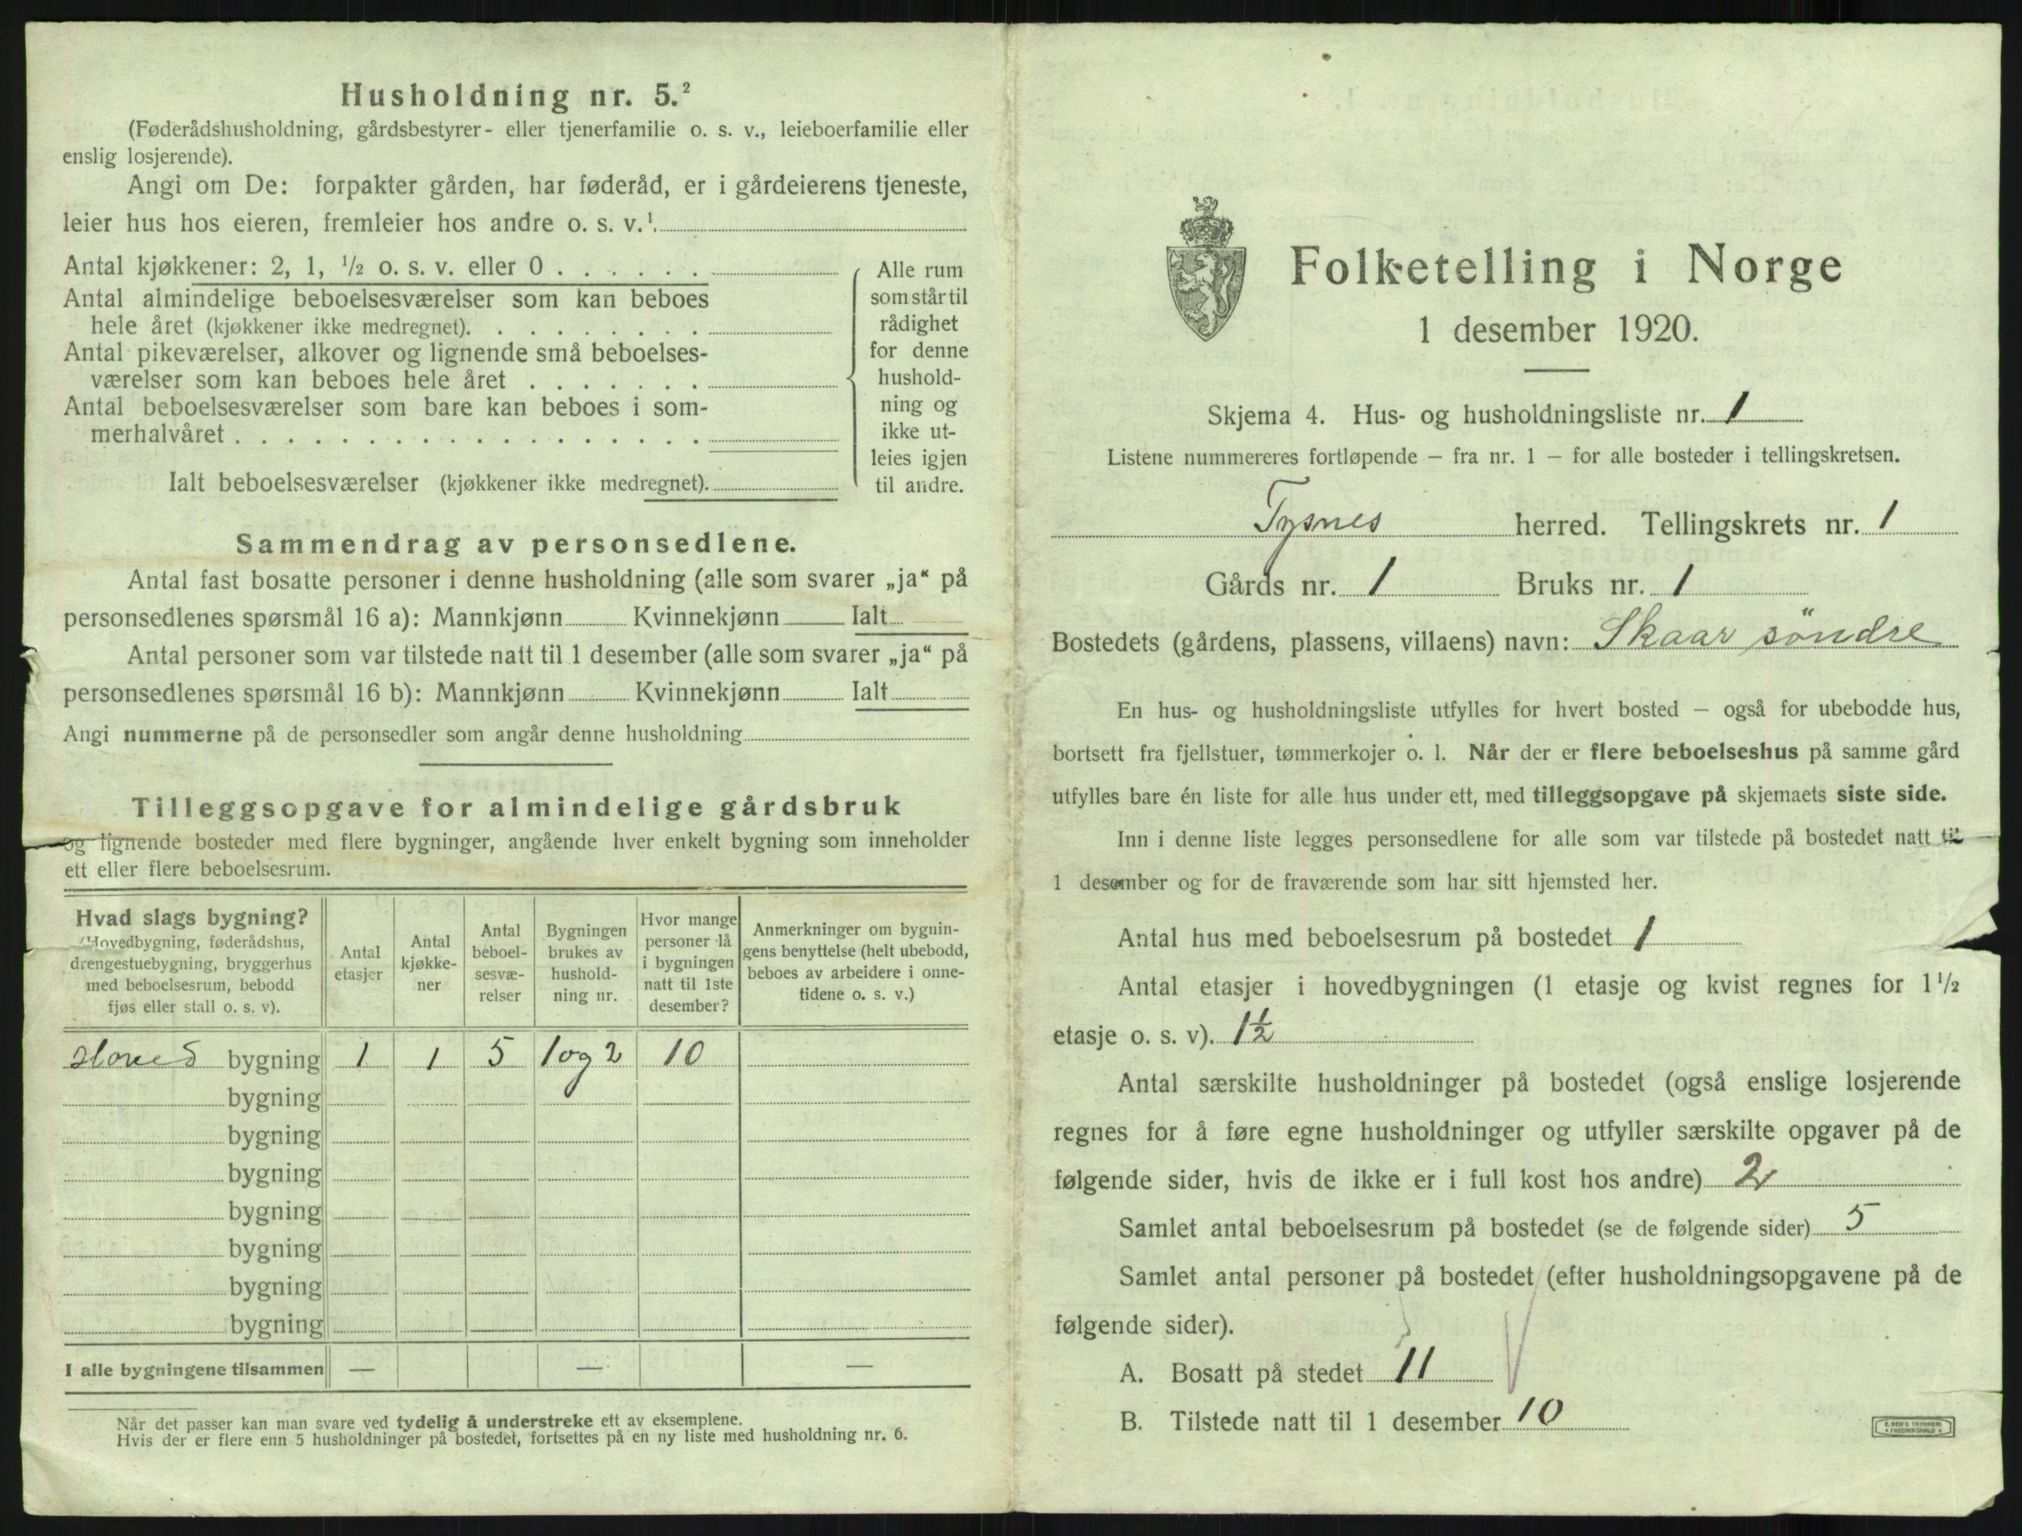 Husholdning nr. 5.²
(Føderådshusholdning, gårdsbestyrer- eller tjenerfamilie o. s. v., leieboerfamilie eller
enslig losjerende).
Angi om De: forpakter gården, har føderåd, er i gårdeierens tjeneste,
leier hus hos eieren, fremleier hos andre o. s. v.¹.
Antal kjøkkener: 2, 1, ½ o. s. v. eller 0 . . . . . .
Antal almindelige beboelsesværelser som kan beboes
hele året (kjøkkener ikke medregnet). . . . . . . . .
Antal pikeværelser, alkover og lignende små beboelses-
værelser som kan beboes hele året . . . . . . .
Antal beboelsesværelser som bare kan beboes i som-
merhalvåret . . . . . . . . . . . . . . . . . .
Ialt beboelsesværelser (kjøkkener ikke medregnet).
Alle rum
som står til
rådighet
for denne
hushold-
ning og
ikke ut-
leies igjen
til andre.
Sammendrag av personsedlene.
Antal fast bosatte personer i denne husholdning (alle som svarer „ja“ på
personsedlenes spørsmål 16 a): Mannkjønn Kvinnekjønn Ialt
Antal personer som var tilstede natt til 1 desember (alle som svarer „ja“ på
personsedlenes spørsmål 16 b): Mannkjønn Kvinnekjønn Ialt
Angi nummerne på de personsedler som angår denne husholdning
Tilleggsopgave for almindelige gårdsbruk
og lignende bosteder med flere bygninger, angående hver enkelt bygning som inneholder
ett eller flere beboelsesrum.
Hvad slags bygning?
(Hovedbygning, føderådshus,
drengestuebygning, bryggerhus
med beboelsesrum, bebodd
fjøs eller stall o. s. v).
Antal
etasjer
Antal
kjøkke-
ner
Antal
beboel-
sesvæ-
relser
Bygningen
brukes av
hushold-
ning nr.
Hvor mange
personer lå
i bygningen
natt til 1ste
desember?
Anmerkninger om bygnin-
gens benyttelse (helt ubebodd,
beboes av arbeidere i onne-
tidene o. s. v.)
Hoved bygning 1 1 5 1 og 2 10
bygning
bygning
bygning
bygning
bygning
bygning
bygning
I alle bygningene tilsammen — — —
Når det passer kan man svare ved tydelig å understreke ett av eksemplene.
Hvis der er flere enn 5 husholdninger på bostedet, fortsettes på en ny liste med husholdning nr. 6.
Folketelling i Norge
1 desember 1920.
Skjema 4. Hus- og husholdningsliste nr. 1
Listene nummereres fortløpende – fra nr. 1 – for alle bosteder i tellingskretsen.
Tysnes herred. Tellingskrets nr. 1
Gårds nr. 1 Bruks nr. 1
Bostedets (gårdens, plassens, villaens) navn: Skaar søndre
En hus- og husholdningsliste utfylles for hvert bosted – også for ubebodde hus,
bortsett fra fjellstuer, tømmerkojer o. l. Når der er flere beboelseshus på samme gård
utfylles bare én liste for alle hus under ett, med tilleggsopgave på skjemaets siste side.
Inn i denne liste legges personsedlene for alle som var tilstede på bostedet natt til
1 desember og for de fraværende som har sitt hjemsted her.
Antal hus med beboelsesrum på bostedet 1
Antal etasjer i hovedbygningen (1 etasje og kvist regnes for 1½
etasje o. s. v). 1½
Antal særskilte husholdninger på bostedet (også enslige losjerende
regnes for å føre egne husholdninger og utfyller særskilte opgaver på de
følgende sider, hvis de ikke er i full kost hos andre) 2
Samlet antal beboelsesrum på bostedet (se de følgende sider) 5
Samlet antal personer på bostedet (efter husholdningsopgavene på de
følgende sider).
A. Bosatt på stedet 11
B. Tilstede natt til 1 desember 10